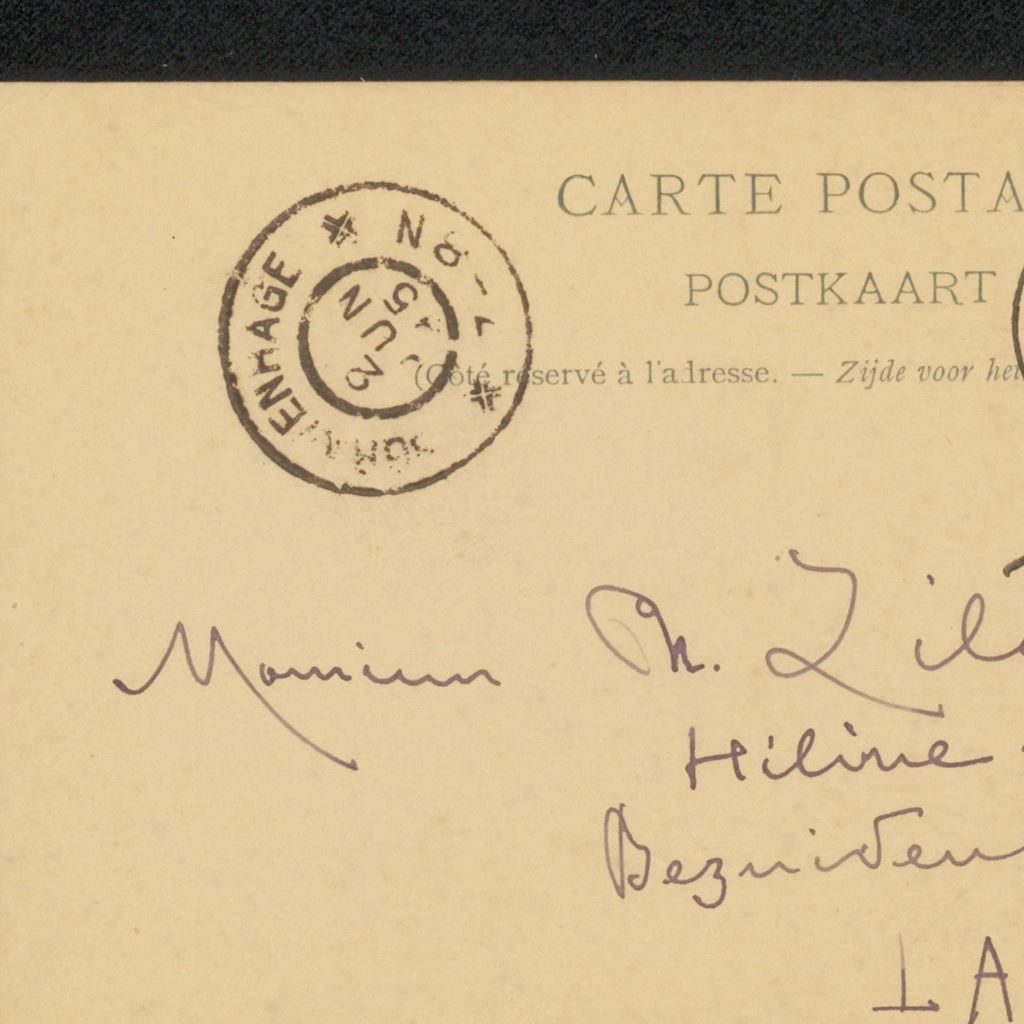 CARTE POSTA
POSTKAART
(Côté réservé à l'adresse. — Zijde voor het
'SGRAVENHAGE
N 8-
2 JUN
95
Monsieur Ph. Zil
Hélène
Bezuiden
LA